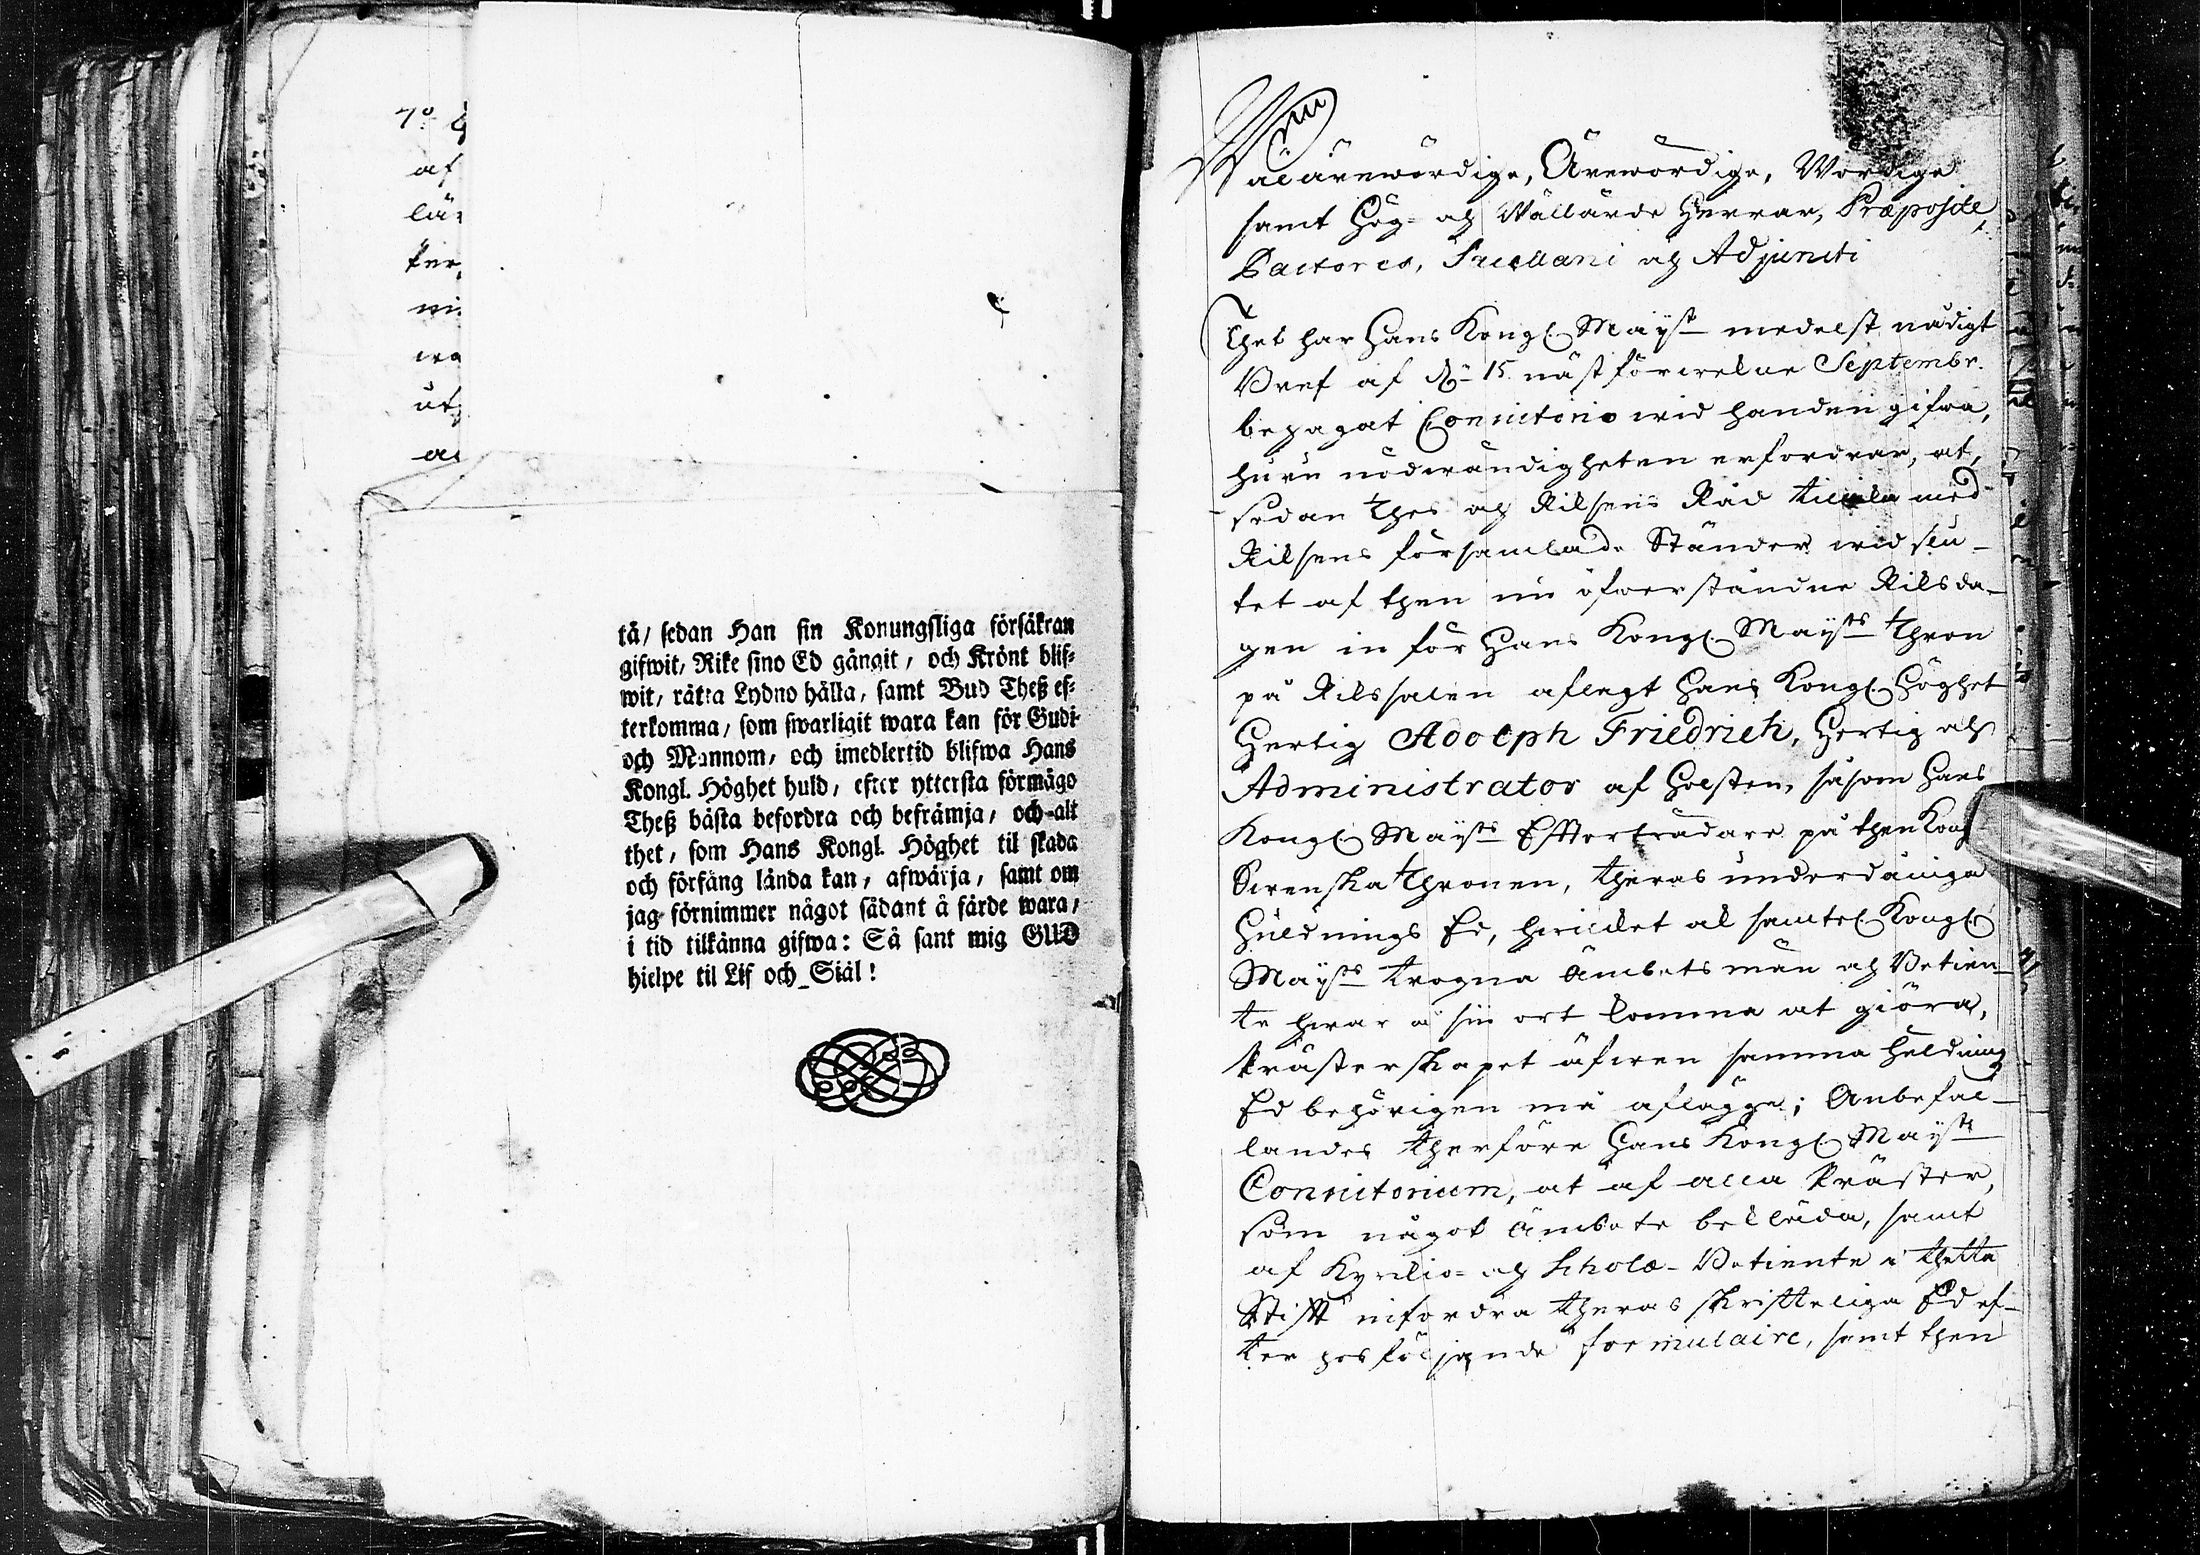 7o
af
lär
ker
mi
wa
ut
al
tå/ sedan Han sin Konungsliga försäkran
gifwit, Rike sino Ed gångit, och Krönt blif-
wit, rätta Lydno hålla, samt Bud Theß ef-
terkomma, som swarligit wara kan för Gudi
och Mannom, och imedlertid blifwa Hans
Kongl. Höghet huld, efter yttersta förmågo
Theß bästa befordra och befrämja, och alt
thet, som Hans Kongl. Höghet til skada
och förfäng lända kan, afwärja, samt om
jag förnimmer något sådant å färde wara,
i tid tilkänna gifwa: Så sant mig GUD
hielpe til Lif och Siäl!
Wälärewördige, Ärewördige, Wördige
samt Hög- och Wällärde Herrar, Præposite,
Pastores, Sacellani och Adjuncti
Thet har Hans Kongl. Mayst medelst nådigt
Bref af d. 15 nästförwekne Septembr.
behagat Consistorio wid handen gifwa,
huru nödwändigheten erfordrar, at,
sedan Thes och Riksens Råd tillika med
Riksens församlade Ständer wid slu-
tet af then nu öfwerståndne Riksda-
gen in för Hans Kongl. Maysts Thron
på Rikssalen aflagt Hans Kongl. Höghet
Hertig Adolph Friedrich, Hertig och
Administrator af Holsten, såsom Hans
Kongl. Maysts Efterträdare på then Kongl.
Swenska Thronen, theras underdåniga
Huldnings Ed, hwilket ock samtl. Kongl.
Maysts trogna Ämbetsmän och Betien-
te hwar å sin ort komma at giöra,
Prästerskapet äfwen samma Huldnings
Ed behörigen må aflägga; Anbefal-
landes therföre Hans Kongl. Mayst
Consistorium, at af alla Präster,
som något Ämbete bekläda, samt
af Kyrkio- och Scholæ-Betiente i thetta
Stift infordra theras skrifteliga Ed ef-
ter hosföljande formulaire, samt then